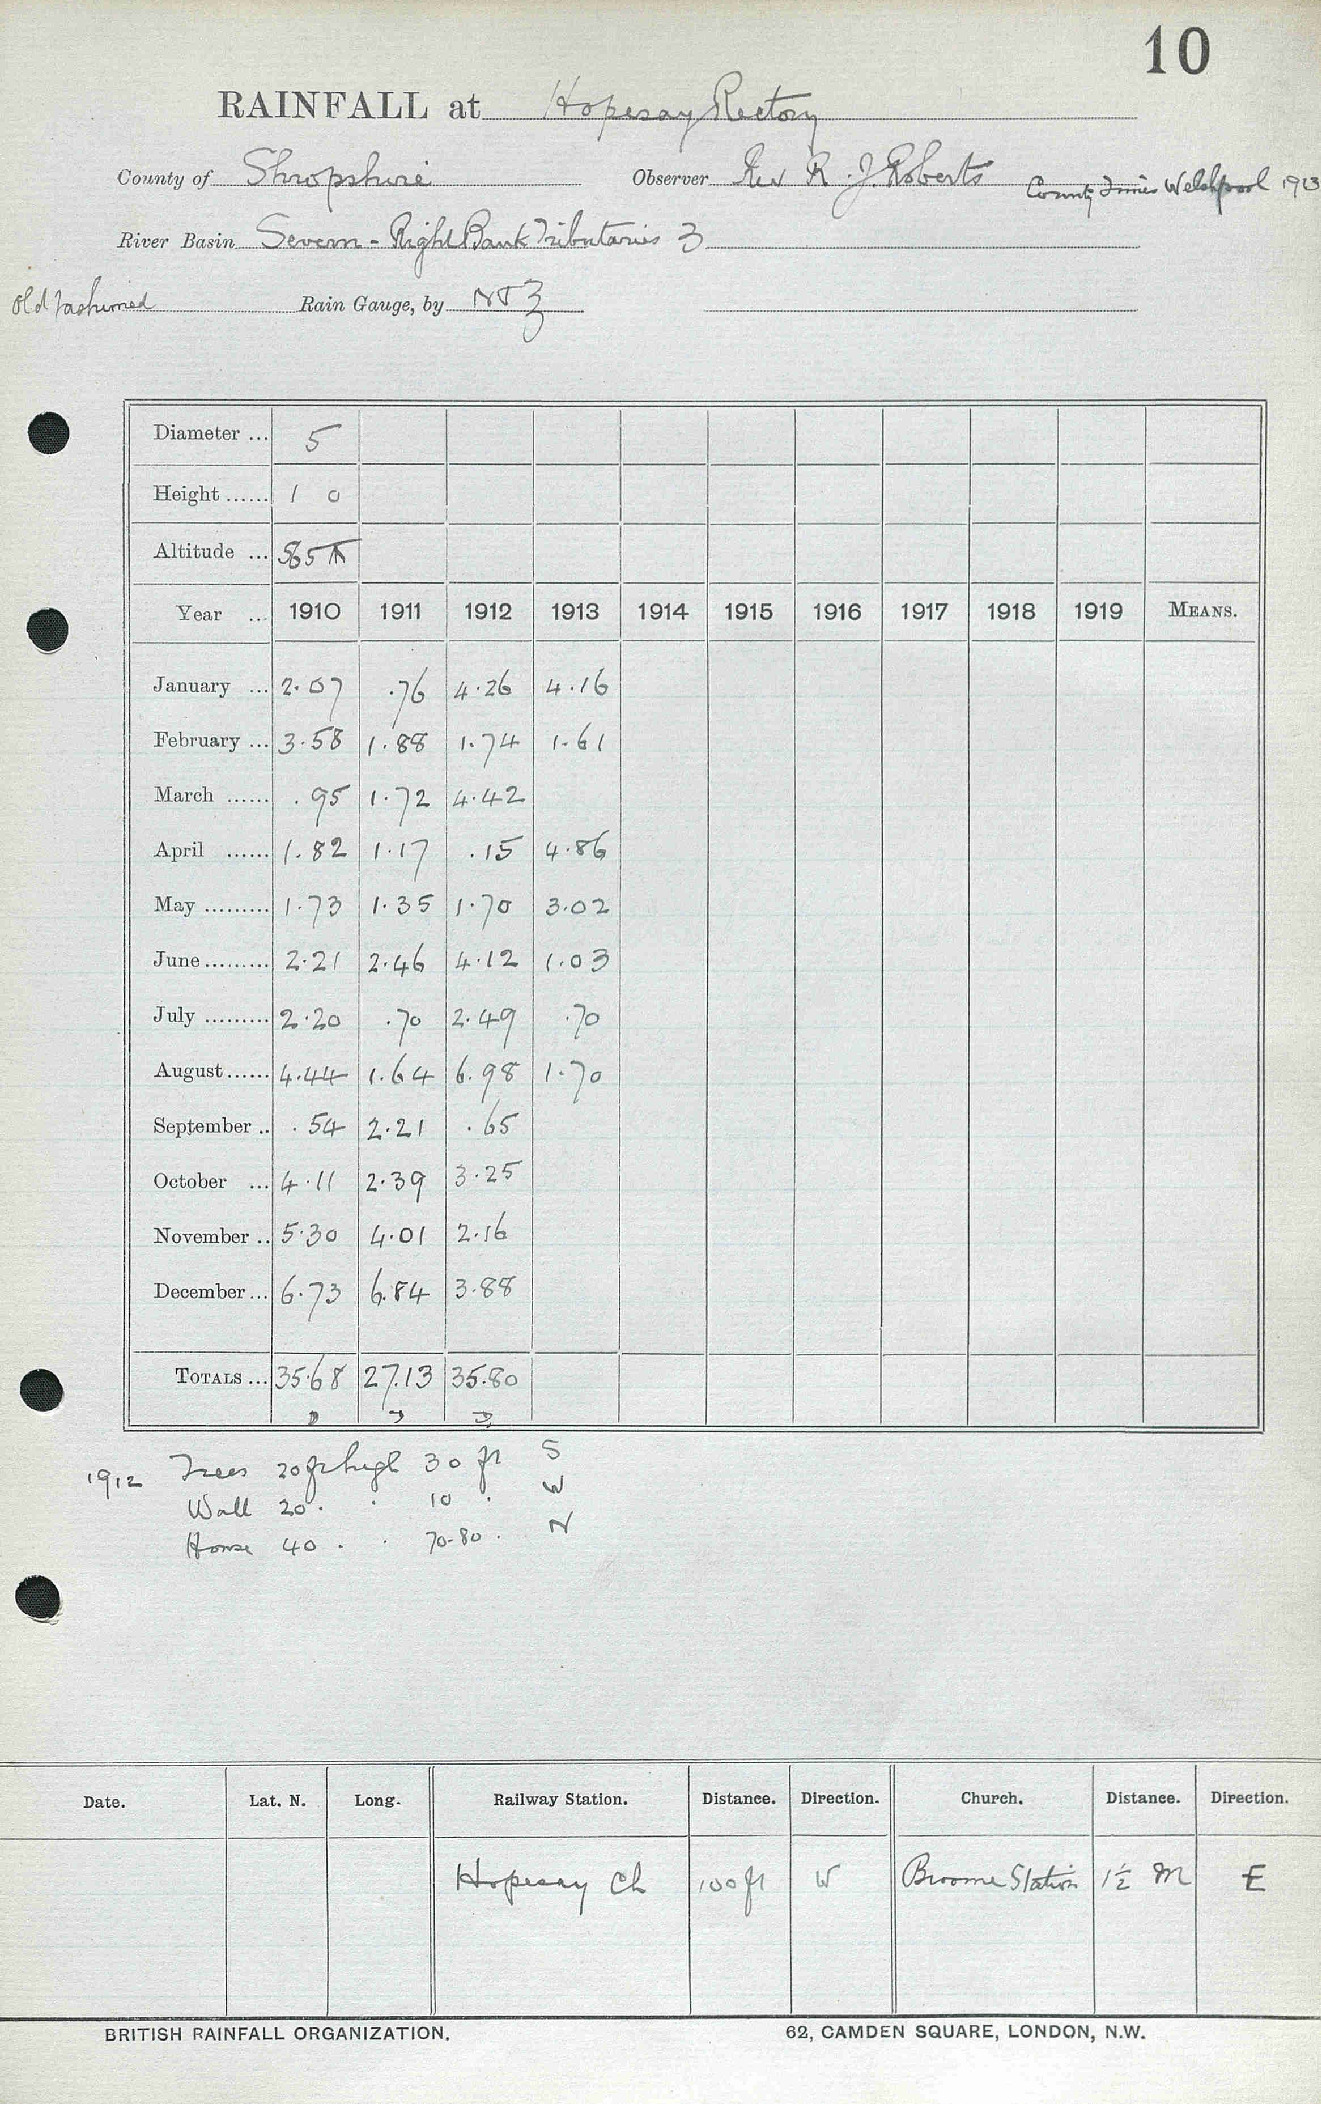 10
RAINFALL at Hopesay Rectory
County of Shropshire Observer Rev R. J. Roberts County Times Welshpool 1913
River Basin Severn - Right Bank Tributaries 3
Old fashioned Rain Gauge, by N & Z
Diameter ... 5
Height ...... 1 0
Altitude ... 565 ft
Year ... 1910 1911 1912 1913 1914 1915 1916 1917 1918 1919 MEANS.
January ... 2.07 .76 4.26 4.16
February ... 3.58 1.88 1.74 1.61
March ...... .95 1.72 4.42
April ...... 1.82 1.17 .15 4.86
May ......... 1.73 1.35 1.70 3.02
June ......... 2.21 2.46 4.12 1.03
July ......... 2.20 .70 2.49 .70
August ...... 4.44 1.64 6.98 1.70
September .. .54 2.21 .65
October ... 4.11 2.39 3.25
November .. 5.30 4.01 2.16
December ... 6.73 6.84 3.88
TOTALS ... 35.68 27.13 35.80
1912 Trees 20 ft high 30 ft S
Wall 20 . . 10 . W
House 40 . . 70-80 . N
Date. Lat. N. Long. Railway Station. Distance. Direction. Church. Distance. Direction.
Hopesay Ch 100 ft W Broome Station 1½ M E
BRITISH RAINFALL ORGANIZATION. 62, CAMDEN SQUARE, LONDON, N.W.